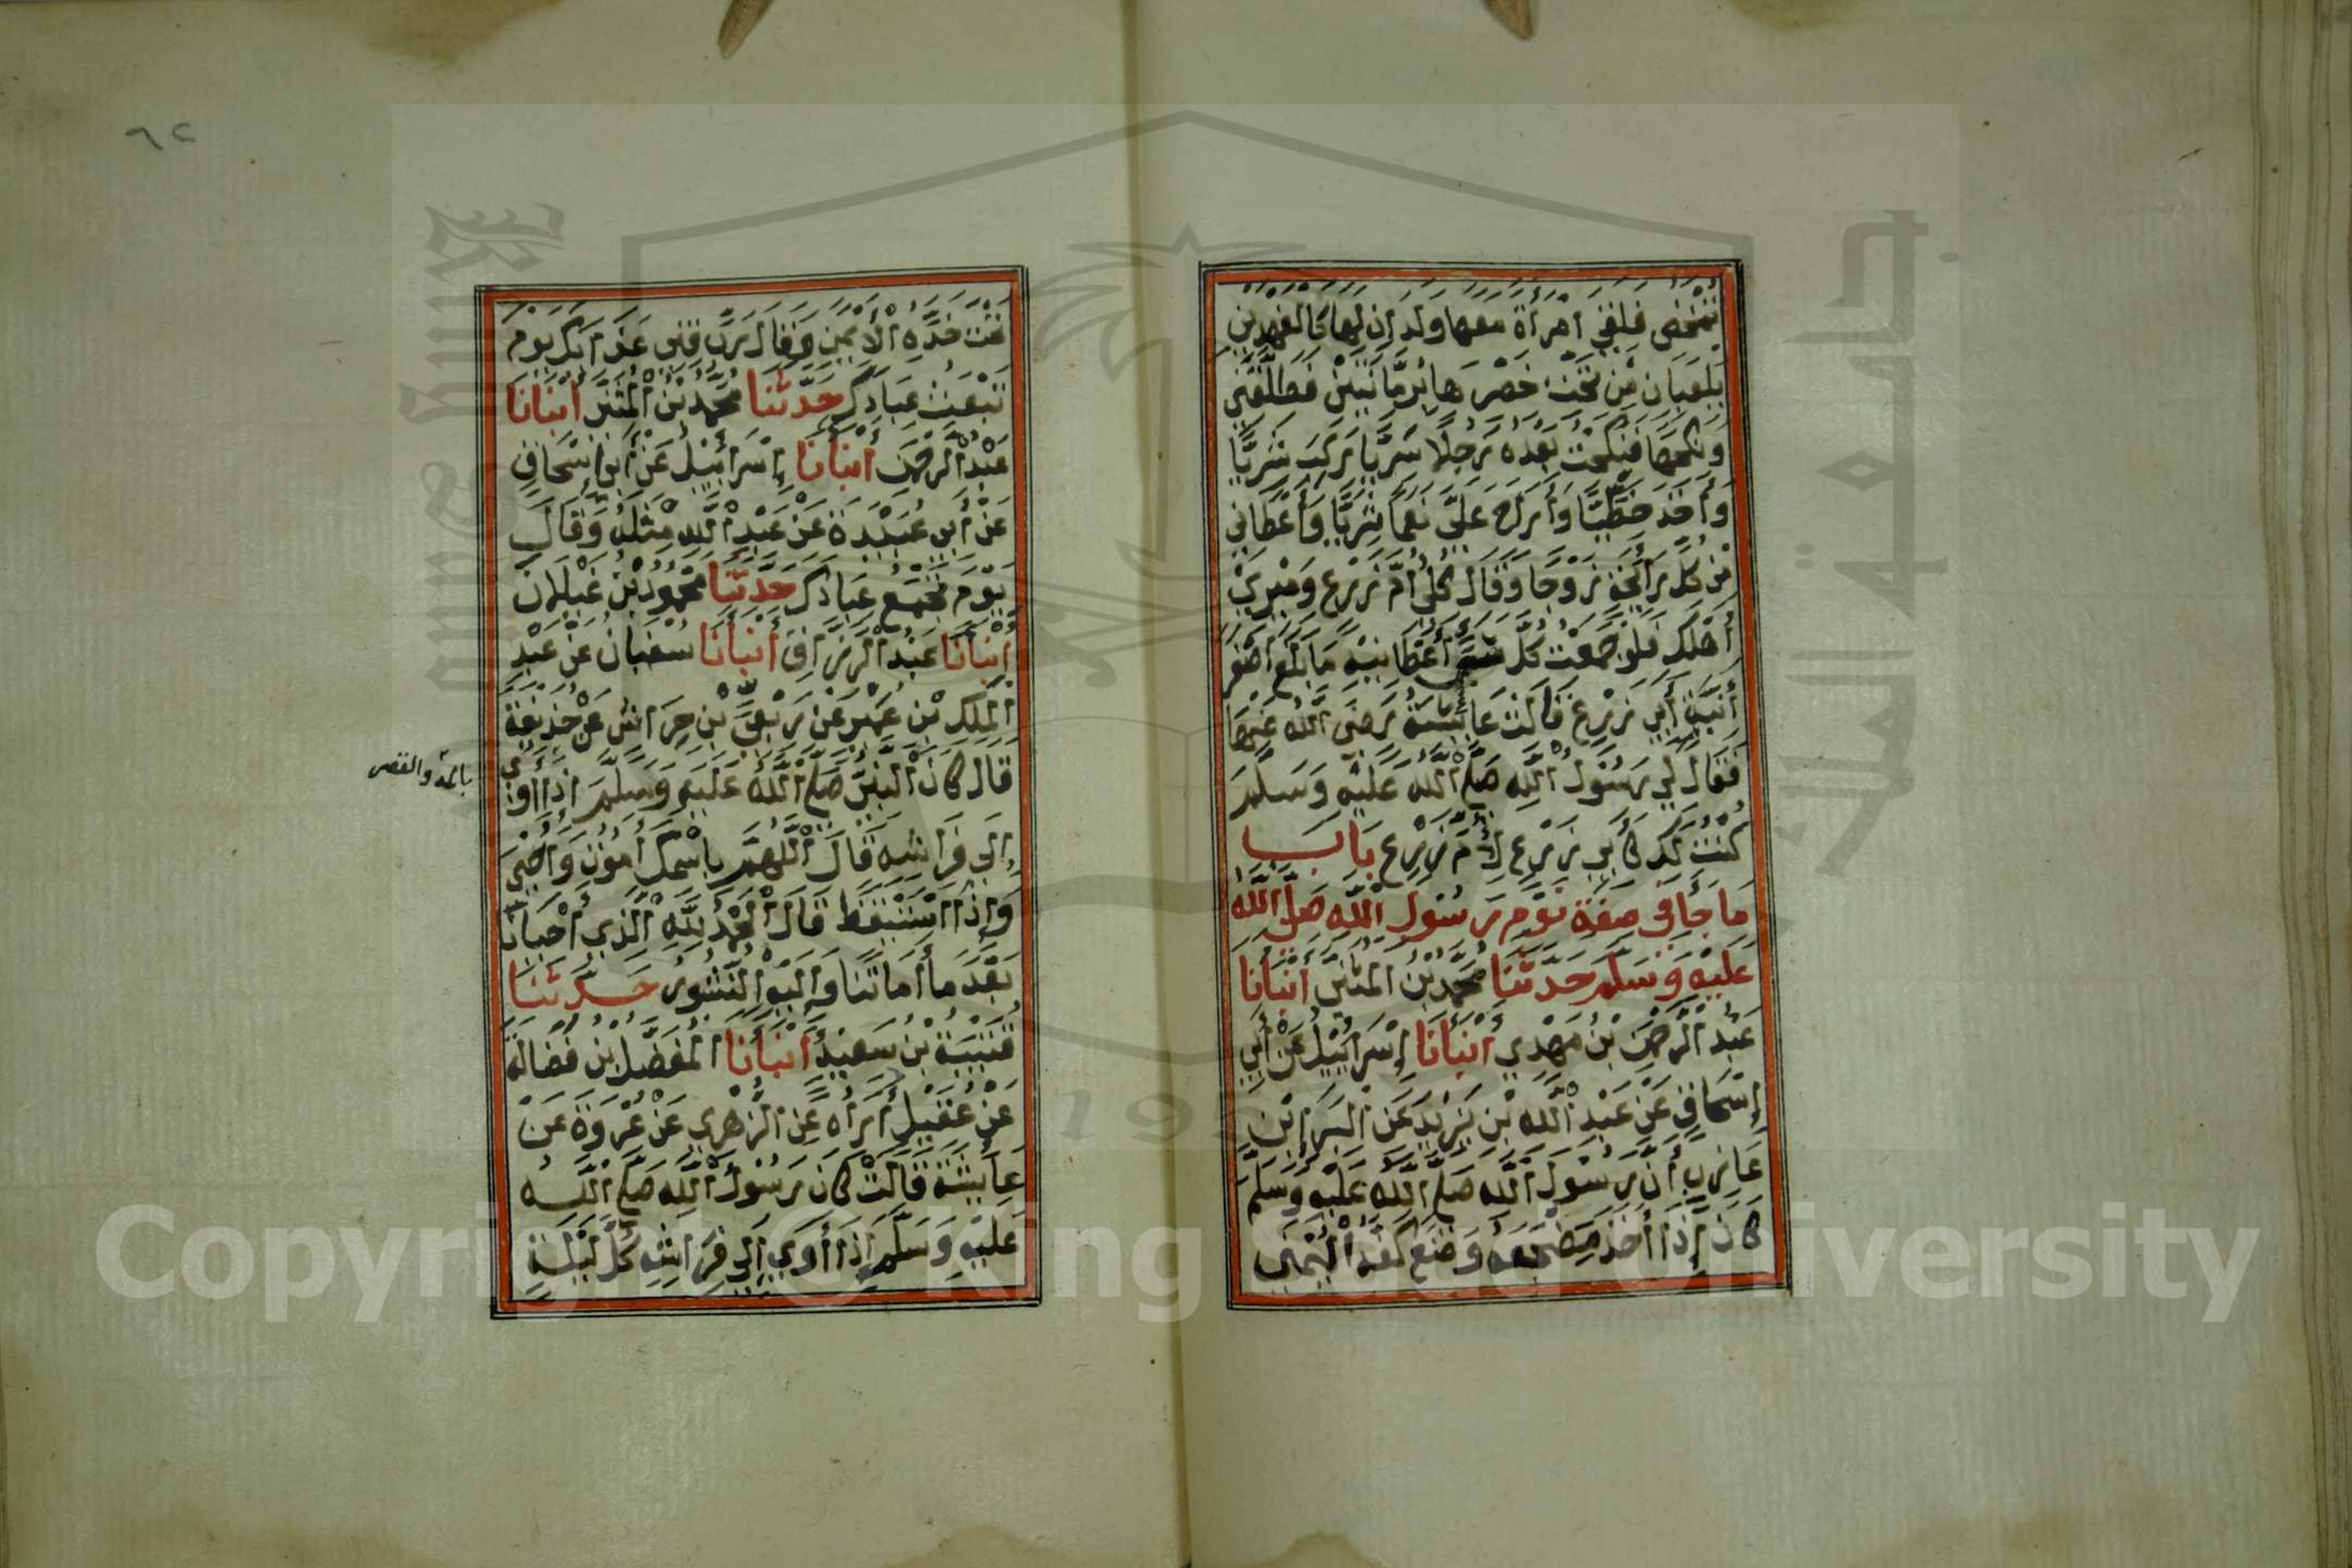 تمخض فلقي امرأة معها ولدان لها كالفهدين
يلعبان من تحت خصرها برمانتين فطلقني
ونكحها فنكحت بعده رجلا سريا ركب شريا
وأخذ خطيا وأراح علي نعما ثريا وأعطاني
من كل رائحة زوجا وقال كلي أم زرع وميري
أهلك فلو جمعت كل شيء أعطانيه ما بلغ أصغر
آنية أبي زرع قالت عائشة رضي الله عنها
فقال لي رسول الله صلى الله عليه وسلم
كنت لك كأبي زرع لأم زرع باب
ما جا في صفة نوم رسول الله صلى الله
عليه وسلم حدثنا محمد بن المثنى أنبأنا
عبد الرحمن بن مهدي أنبأنا إسرائيل عن أبي
إسحاق عن عبد الله بن يزيد عن البرا بن
عازب أن رسول الله صلى الله عليه وسلم
كان إذا أخذ مضجعه وضع كفه اليمنى
٦٢
تحت خده الأيمن وقال رب قني عذابك يوم
تبعث عبادك حدثنا محمد بن المثنى أنبأنا
عبد الرحمن أنبأنا إسرائيل عن أبي إسحاق
عن أبي عبيدة عن عبد الله مثله وقال
يوم تجمع عبادك حدثنا محمود بن غيلان
أنبأنا عبد الرزاق أنبأنا سفيان عن عبد
الملك بن عمير عن ربعي بن حراش عن حذيفة
قال كان النبي صلى الله عليه وسلم إذا أوى
بالمد والقصر
إلى فراشه قال اللهم باسمك أموت وأحيى
وإذا استيقظ قال الحمد لله الذي أحيانا
بعد ما أماتنا وإليه النشور حدثنا
قتيبة بن سعيد أنبأنا المفضل بن فضالة
عن عقيل أراه عن الزهري عن عروة عن
عايشة قالت كان رسول الله صلى الله
عليه وسلم إذا أوى إلى فراشه كل ليلة
Copyright © King Saud University